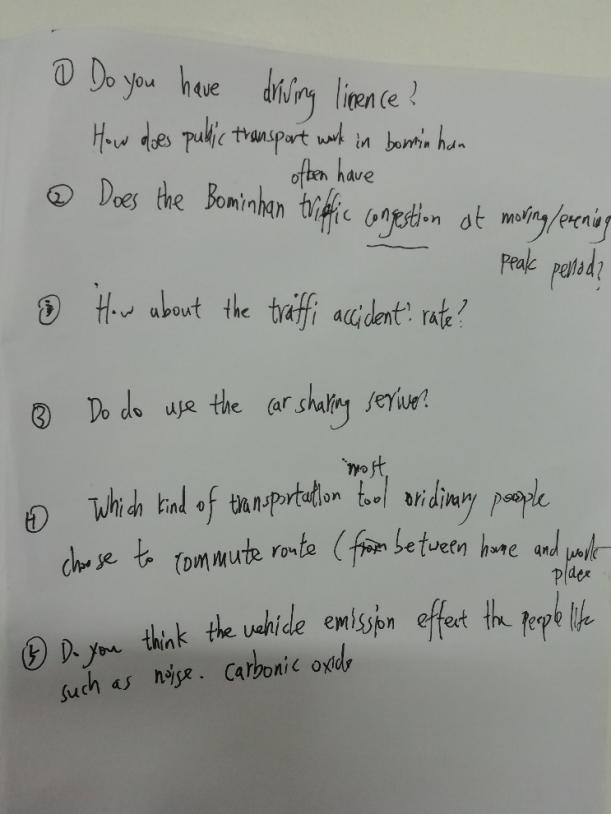 ① Do you have driving linence?
How does public transport work in bominhan
often have
② Does the Bominhan triffic congestion at moving/evening
peak period?
③ How about the traffi accident? rate?
③ Do do use the car sharing serive?
most
④ Which kind of transportation tool oridinary people
choose to commute route (from between home and work
place
⑤ Do you think the vehicle emission effect the people life
such as noise. carbonic oxide